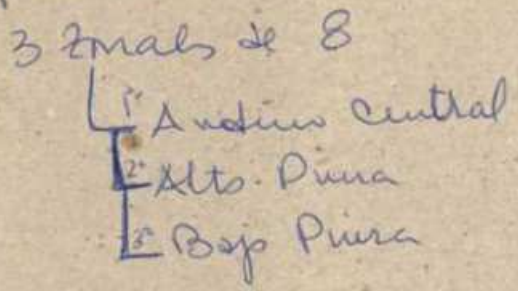 3 Zonales de 8
1º Andino Central
2º Alto Piura
3º Bajo Piura